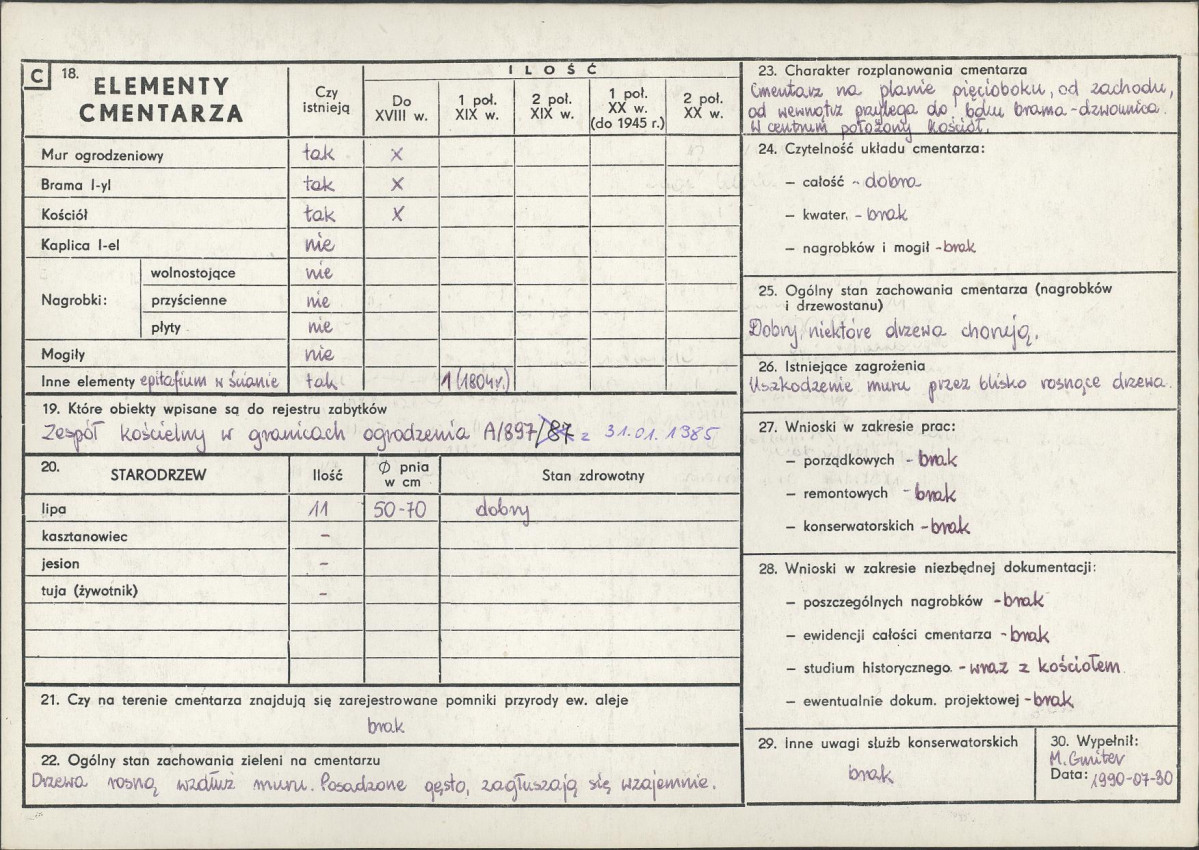 C 18. ELEMENTY CMENTARZA
Czy istnieją
ILOŚĆ
Do XVIII w.
1 poł. XIX w.
2 poł. XIX w.
1 poł. XX w. (do 1945 r.)
2 poł. XX w.
Mur ogrodzeniowy tak x
Brama I-yl tak x
Kościół tak x
Kaplica I-el nie
Nagrobki:
wolnostojące nie
przyścienne nie
płyty nie
Mogiły nie
Inne elementy epitafium w ścianie tak 1 (1804r.)
19. Które obiekty wpisane są do rejestru zabytków
Zespół kościelny w granicach ogrodzenia A/897/87 z 31.01.1985
20. STARODRZEW Ilość Ø pnia w cm Stan zdrowotny
lipa 11 50-70 dobry
kasztanowiec -
jesion -
tuja (żywotnik) -
21. Czy na terenie cmentarza znajdują się zarejestrowane pomniki przyrody ew. aleje
brak
22. Ogólny stan zachowania zieleni na cmentarzu
Drzewa rosną wzdłuż muru. Posadzone gęsto, zagłuszają się wzajemnie.
23. Charakter rozplanowania cmentarza
Cmentarz na planie pięcioboku, od zachodu,
od wewnątrz przylega do bdku brama-dzwonnica.
W centrum położony kościół.
24. Czytelność układu cmentarza:
– całość - dobra
– kwater, - brak
– nagrobków i mogił - brak
25. Ogólny stan zachowania cmentarza (nagrobków
i drzewostanu)
Dobry, niektóre drzewa chorują.
26. Istniejące zagrożenia
Uszkodzenie muru przez blisko rosnące drzewa.
27. Wnioski w zakresie prac:
– porządkowych - brak
– remontowych - brak
– konserwatorskich - brak
28. Wnioski w zakresie niezbędnej dokumentacji:
– poszczególnych nagrobków - brak
– ewidencji całości cmentarza - brak
– studium historycznego - wraz z kościołem
– ewentualnie dokum. projektowej - brak
29. Inne uwagi służb konserwatorskich
brak
30. Wypełnił:
M. Gmiter
Data: 1990-07-30